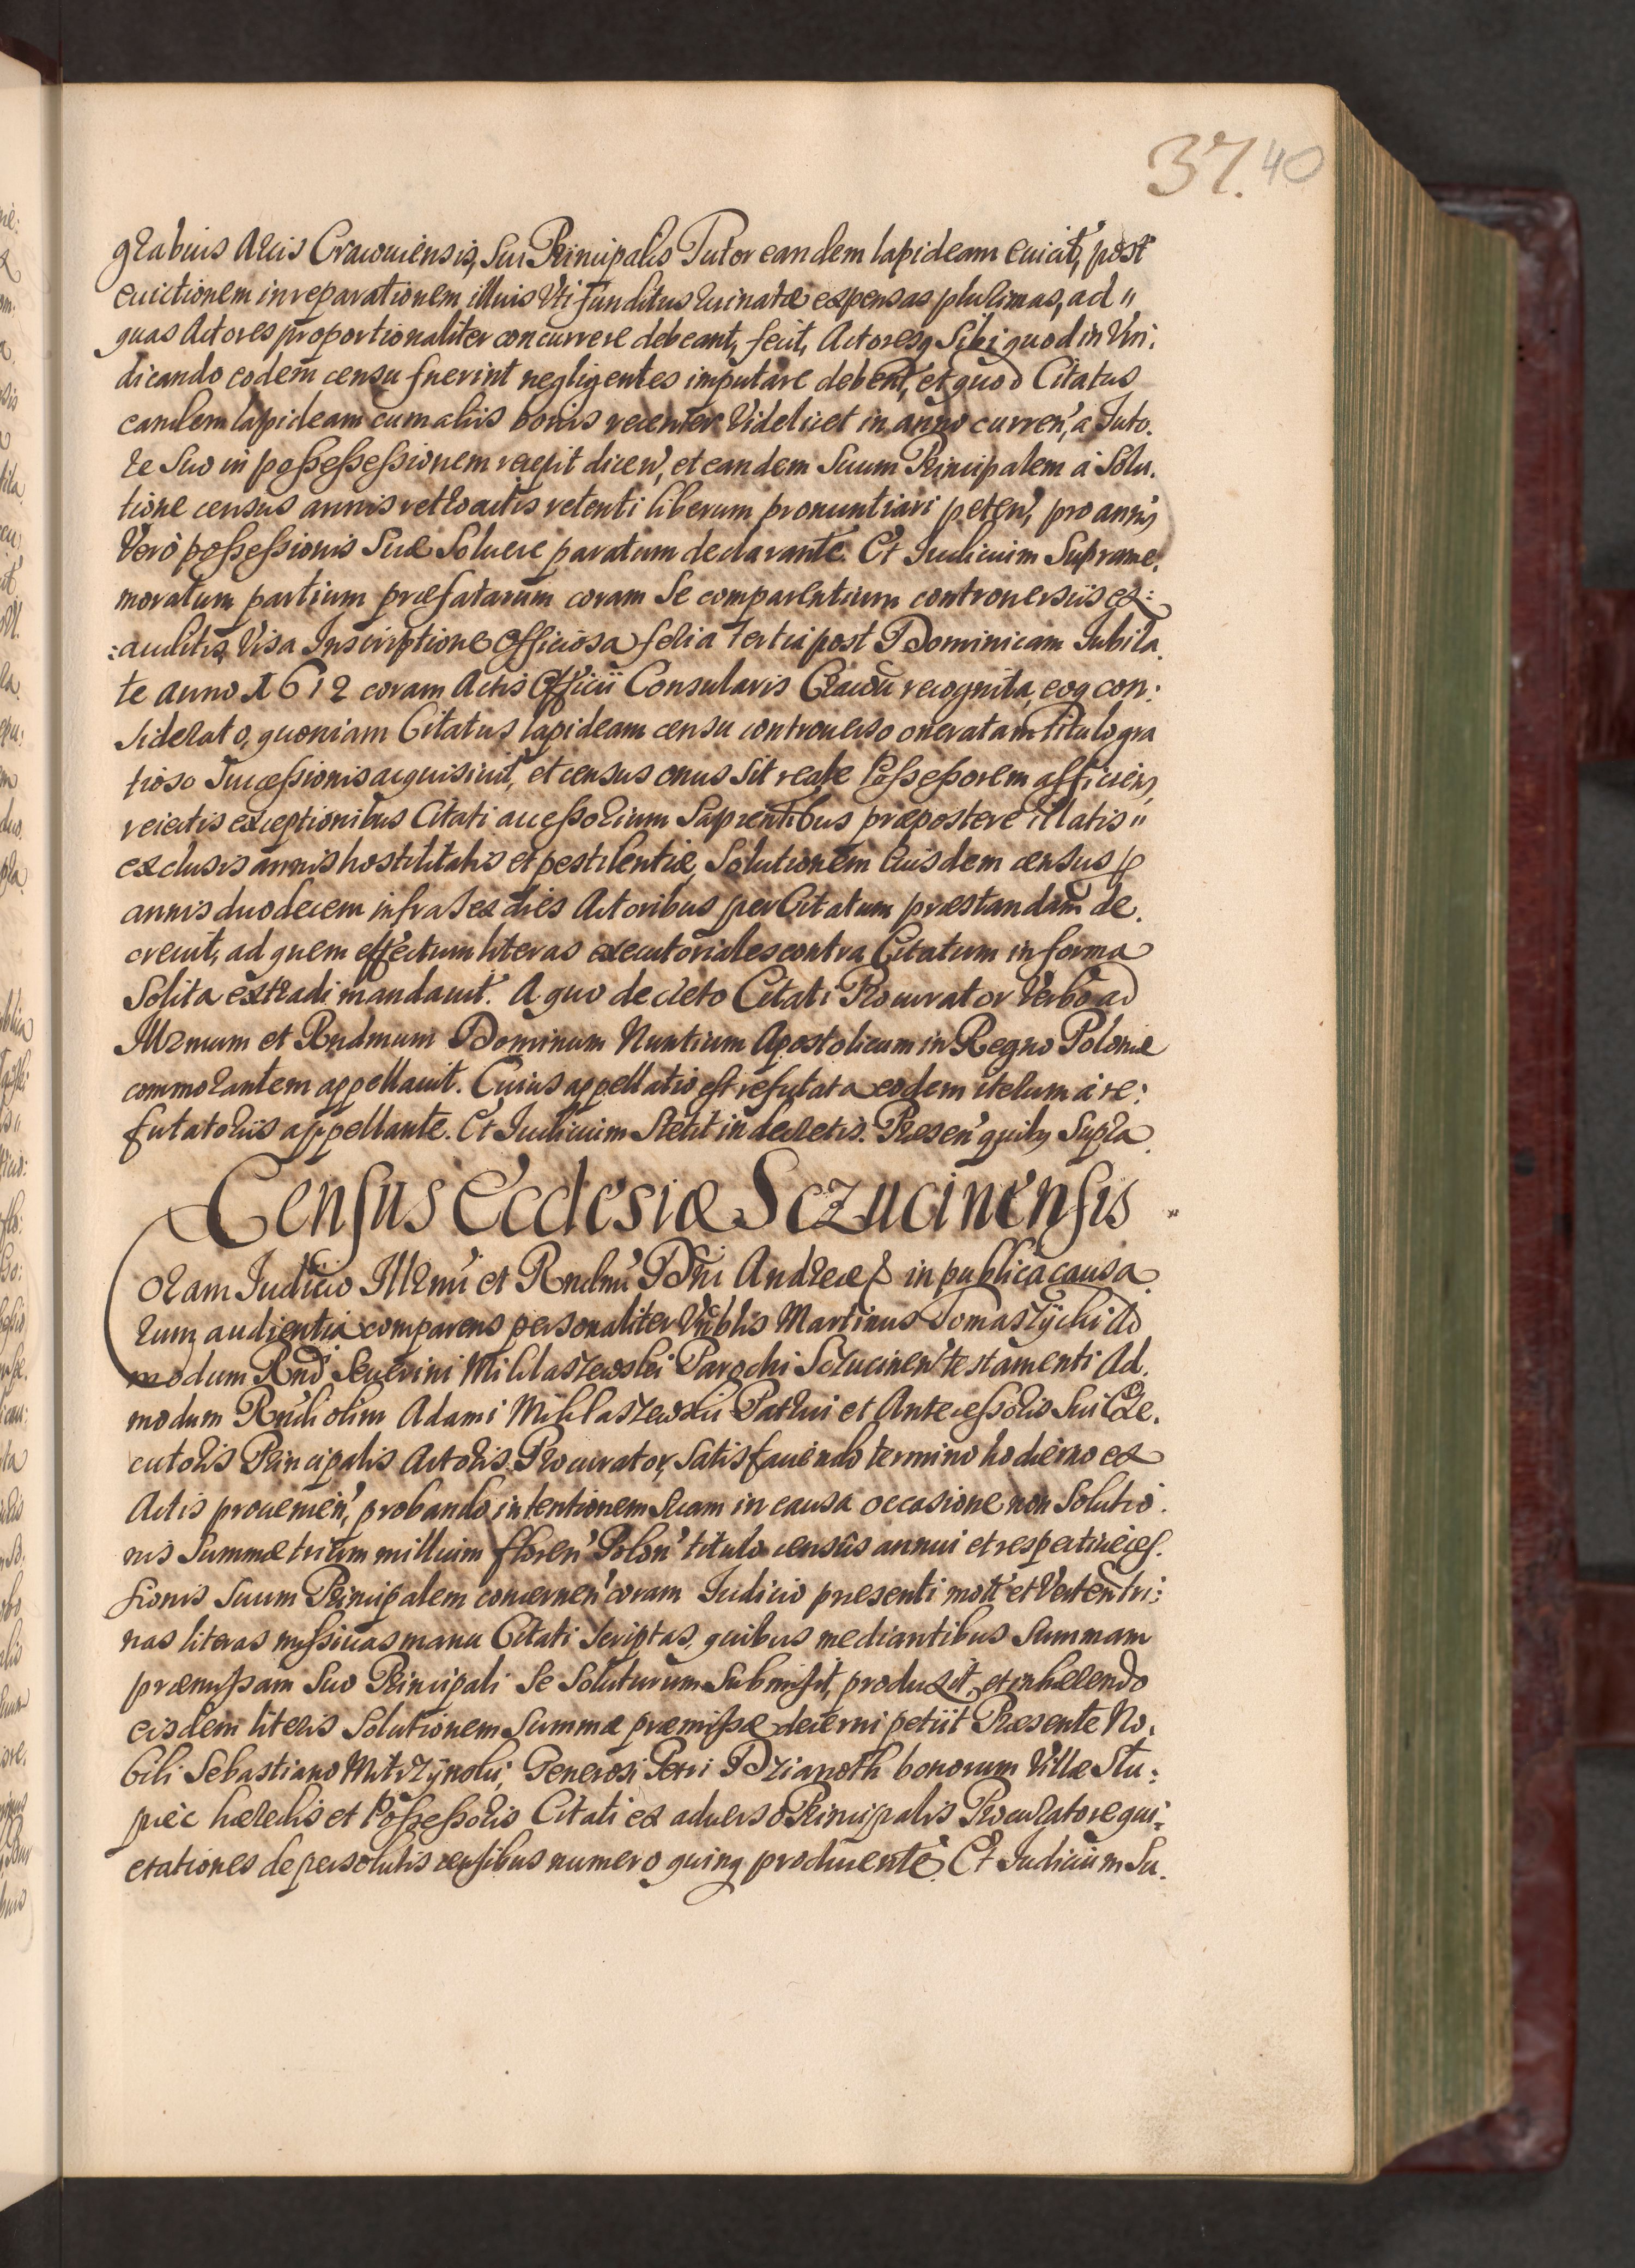 37. 40
grabius Arcis Cracoviensis, Sui Principalis Tutor eandem lapideam euicit, post
euictionem in reparationem illius Uti funditus ruinatæ expensas plurimas, ad "
quas Actores proportionaliter concurrere debeant, fecit, Actoresq Sibi quod in Vin:
dicando eodem censu fuerint negligentes imputare debent, et quod Citatus
eandem lapideam cum aliis bonis recenter Videlicet in anno curren', a Tuto.
re Suo in possessessionem recepit dicen', et eandem Suum Principalem à Solu.
tione census annis retroactis retenti liberum pronuntiari peten', pro annis
Verò possessionis Suæ Soluere paratum declarante. Et Iudicium Suprame.
moratum partium præfatarum coram Se comparentium controuersiis ex:
:auditis, Visa Inscriptione Officiosa feria tertia post Dominicam Iubila.
te anno 1612 coram Actis Officii Consularis Cracou recognita, eoq con:
siderato, quoniam Citatus lapideam censu controuerso oneratam titulo gra
tioso Successionis acquisiuit, et census onus Sit reale Possessorem afficiens,
reiectis exceptionibus Citati accessorium Sapientibus præpostere illatis "
exclusis annis hostilitatis et pestilentiæ, Solutionem Eiusdem census p
annis duodecem infra Sex dies Actoribus per Citatum præstandam de.
creuit, ad quem effectum literas executoriales contra Citatum in forma
Solita extradi mandauit. A quo decreto Citati Procurator Verbo ad
Illrmum et Rndmum Dominum Nuntium Apostolicum in Regno Poloniæ
commorantem appellauit. Cuius appellatio est refutata eodem iterum à re:
futatoriis appellante. Et Iudicium Stetit in decretis. Presen' quibg Supra.
Census Ecclesiæ Sczucinensis
Coram Iudicio Illrmi et Rndmi Dni Andreæ in publica causa
rum audientia comparens personaliter Vnblis Martinus Tomaszÿcki Ad
modum Rnd Seuerini Miklaszewski Parochi Sczucinen' testamenti Ad.
modum Rndi olim Adami Miklaszewski Patrui et Antecessoris Sui Exe.
cutoris Principalis Actoris Procurator, Satisfaciendo termino hodierno ex
Actis prouenien', probando intentionem Suam in causa occasione non Solutio.
nis Summæ trium millium floren' Polon' titulo census annui et respectiue ces.
sionis Suum Principalem concernen' coram Iudicio præsenti mott' et Verten tri:
nas literas missiuas manu Citati Scriptas, quibus mediantibus Summam
præmissam Suo Principali Se Soluturum Submisit, produxit, et inhærendo
eisdem literis Solutionem Summæ præmissæ decerni petiit Præsente No.
bili Sebastiano Mitrzÿnski, Generosi Petri Dzianoth bonorum Villæ Stu:
piec hæredis et Possessoris Citati ex aduerso Principalis Procuratore qui:
etationes de persolutis censibus numero quinq producente. Et Iudicium Su.